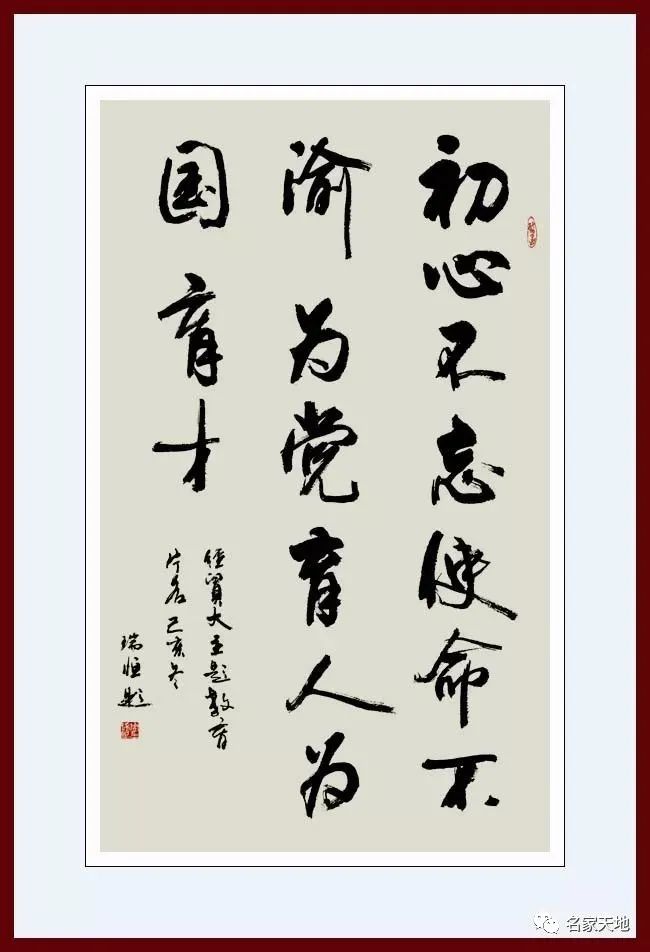 初心不忘使命不
渝为党育人为
国育才
经贸大主题教育
片名己亥冬
瑞恒题
名家天地